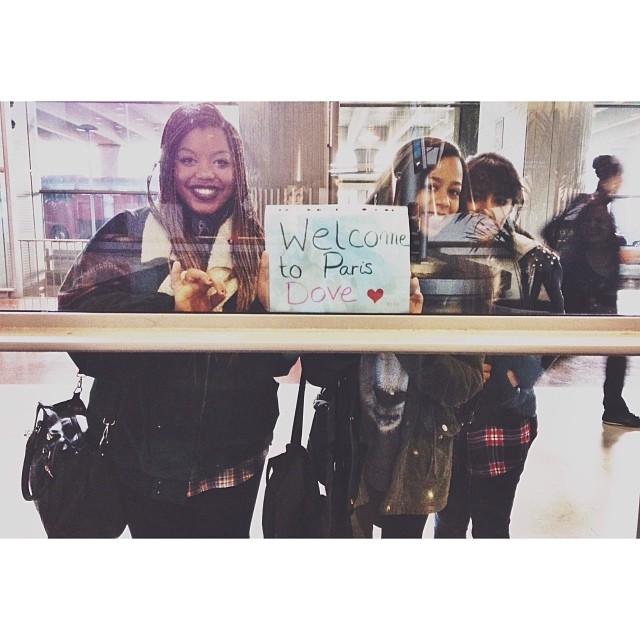 Welcome
to Paris
Dove ♥